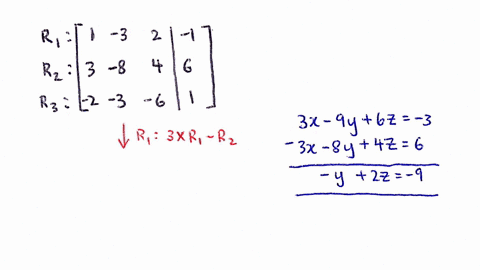 R₁: [ 1 -3 2 | -1 ]
R₂: [ 3 -8 4 | 6 ]
R₃: [ -2 -3 -6 | 1 ]
↓ R₁: 3×R₁-R₂
3x-9y+6z=-3
-3x-8y+4z=6
-y+2z=-9